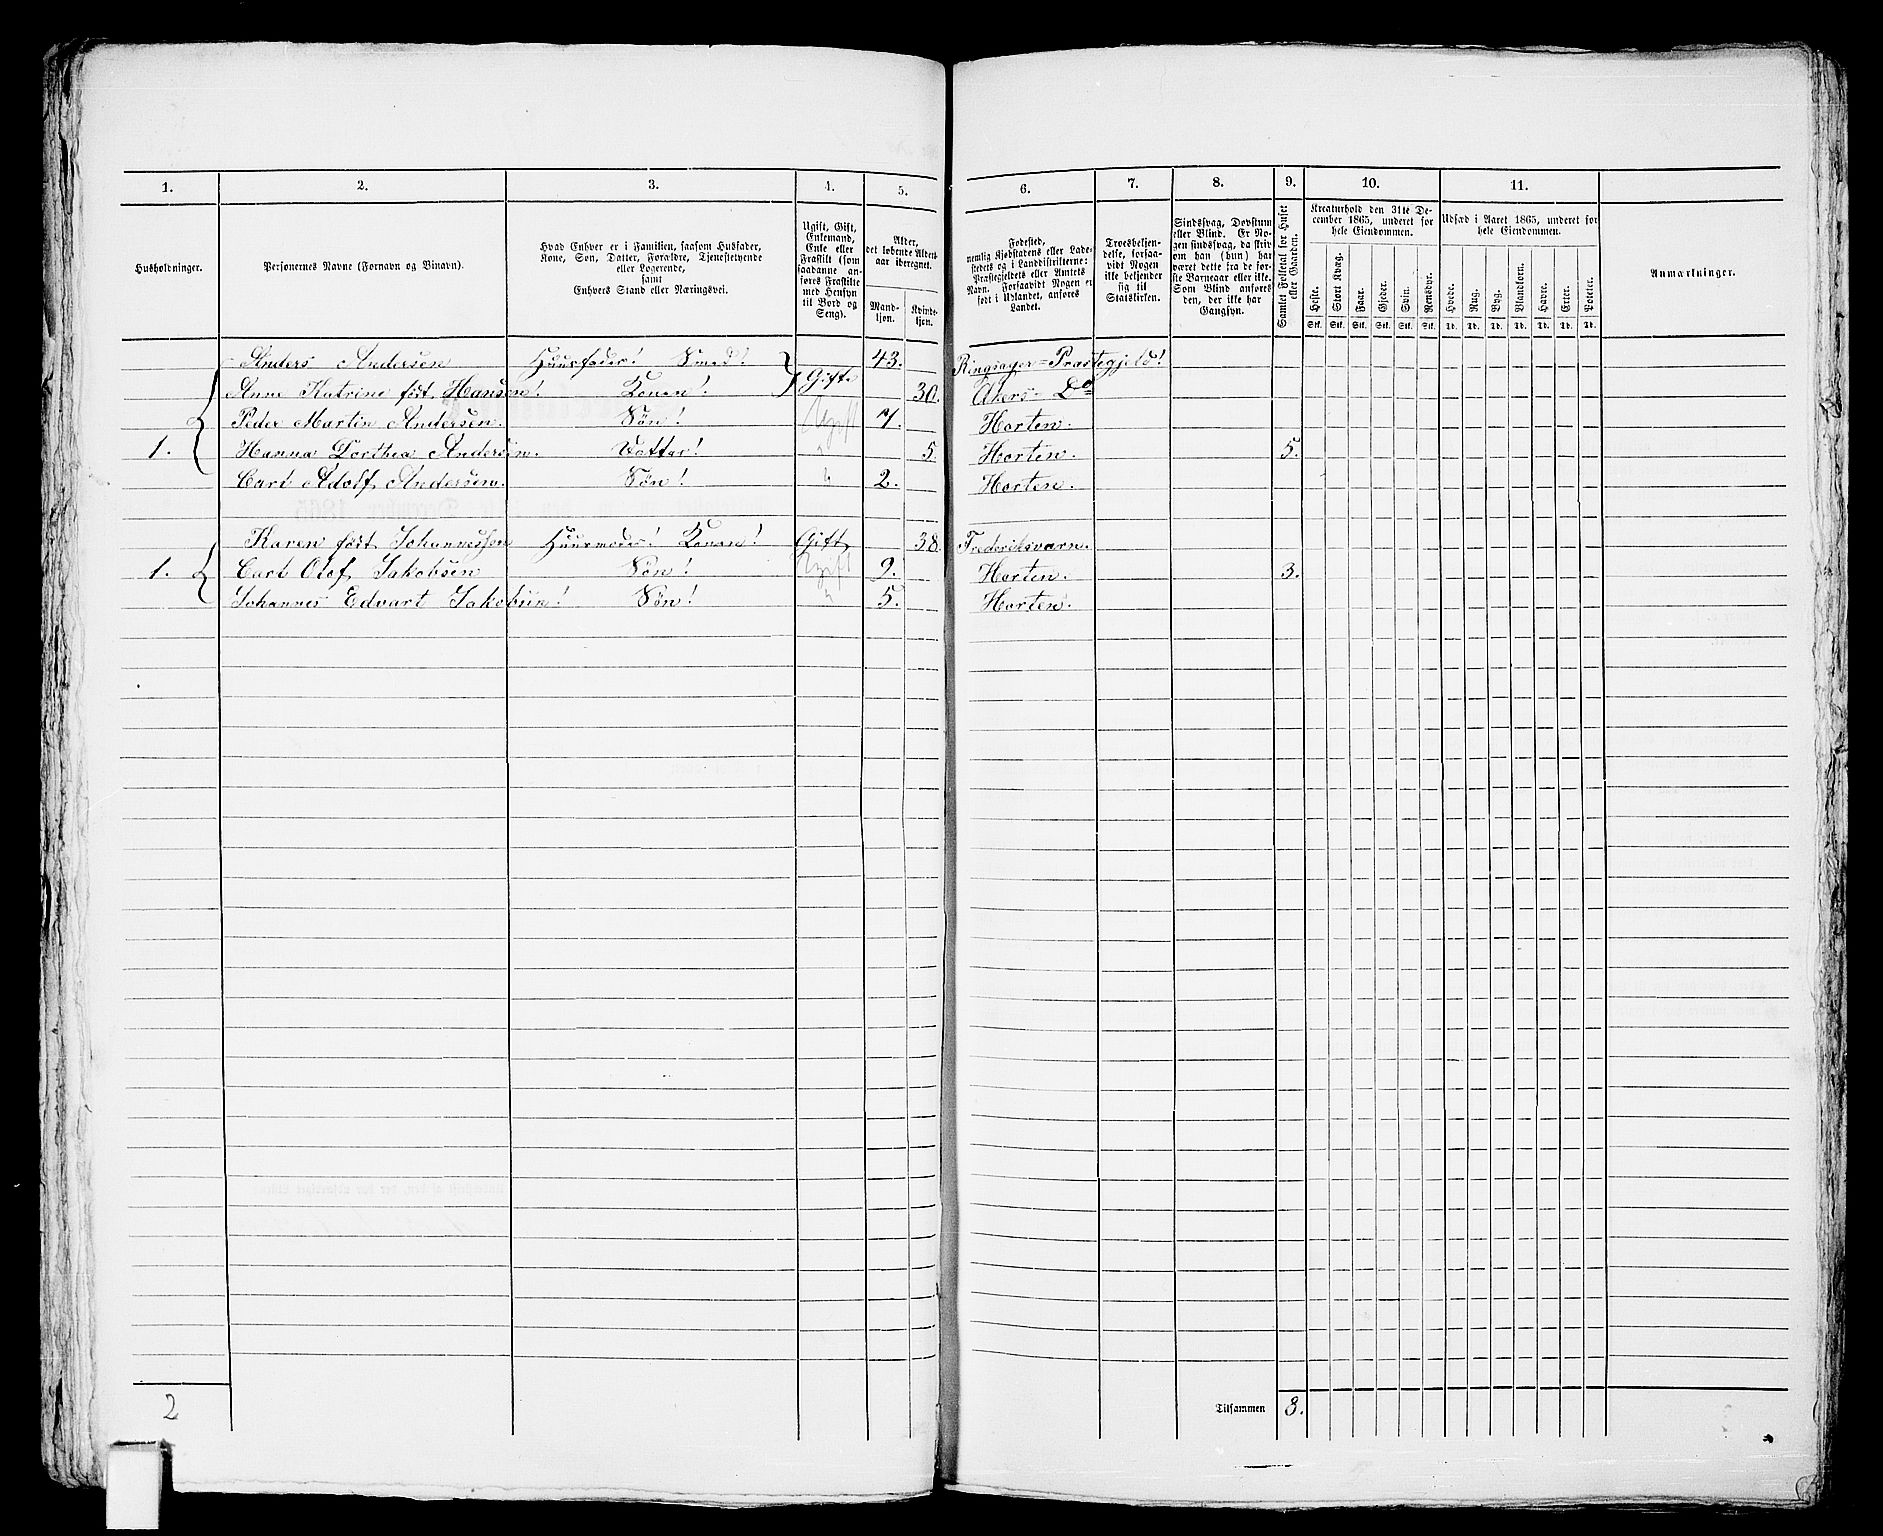 1. 2. 3. 4. 5. 6. 7. 8. 9. 10. 11.
Husholdninger.
Personernes Navne (Fornavn og Binavn).
Hvad Enhver er i Familien, saasom Husfader,
Kone, Søn, Datter, Forældre, Tjenestetyende
eller Logerende,
samt
Enhvers Stand eller Næringsvei.
Ugift, Gift,
Enkemand,
Enke eller
Fraskilt (som
saadanne an-
føres Fraskilte
med Hensyn
til Bord og
Seng).
Alder,
det løbende Alders-
aar iberegnet.
Mand-
kjøn.
Kvinde-
kjøn.
Fødested,
nemlig Kjøbstadens eller Lade-
stedets og i Landdistrikterne:
Præstegjeldets eller Amtets
Navn. Forsaavidt Nogen er
født i Udlandet, anføres
Landet.
Troesbekjen-
delse, forsaa-
vidt Nogen
ikke bekjender
sig til
Statskirken.
Sindssvag, Døvstum
eller Blind. Er No-
gen sindssvag, da skriv
om han (hun) har
været dette fra de før-
ste Barneaar eller ikke.
Som Blind anføres
den, der ikke har
Gangsyn.
Samlet Folketal for Huset
eller Gaarden.
Kreaturhold den 31te De-
cember 1865, underet for
hele Eiendommen.
Heste. Stort Kvæg. Faar. Gjeder. Svin. Rensdyr.
Stk. Stk. Stk. Stk. Stk. Stk.
Udsæd i Aaret 1865, underet for
hele Eiendommen.
Hvede. Rug. Byg. Blandkorn. Havre. Erter. Poteter.
Td. Td. Td. Td. Td. Td. Td.
Anmærkninger.
Anders Andersen Huusfader! Smed! 43. Ringsager=Præstegjeld!
Anne Katrine født Hansen! Konen! Gifte 30. Akers- Do
Peder Martin Andersen. Søn! Ugift 7. Horten.
1. Hanna Dorthea Andersen. Datter! " 5. Horten. 5.
Carl Adolf Andersen. Søn! " 2. Horten.
Karen født Johannessen Huusmoder! Konen! Gift 38. Frederiksværn.
1. Carl Olof Jakobsen Søn! Ugift 9. Horten. 3.
Johannes Edvart Jakobsen! Søn! " 5. Horten.
2 Tilsammen 8.